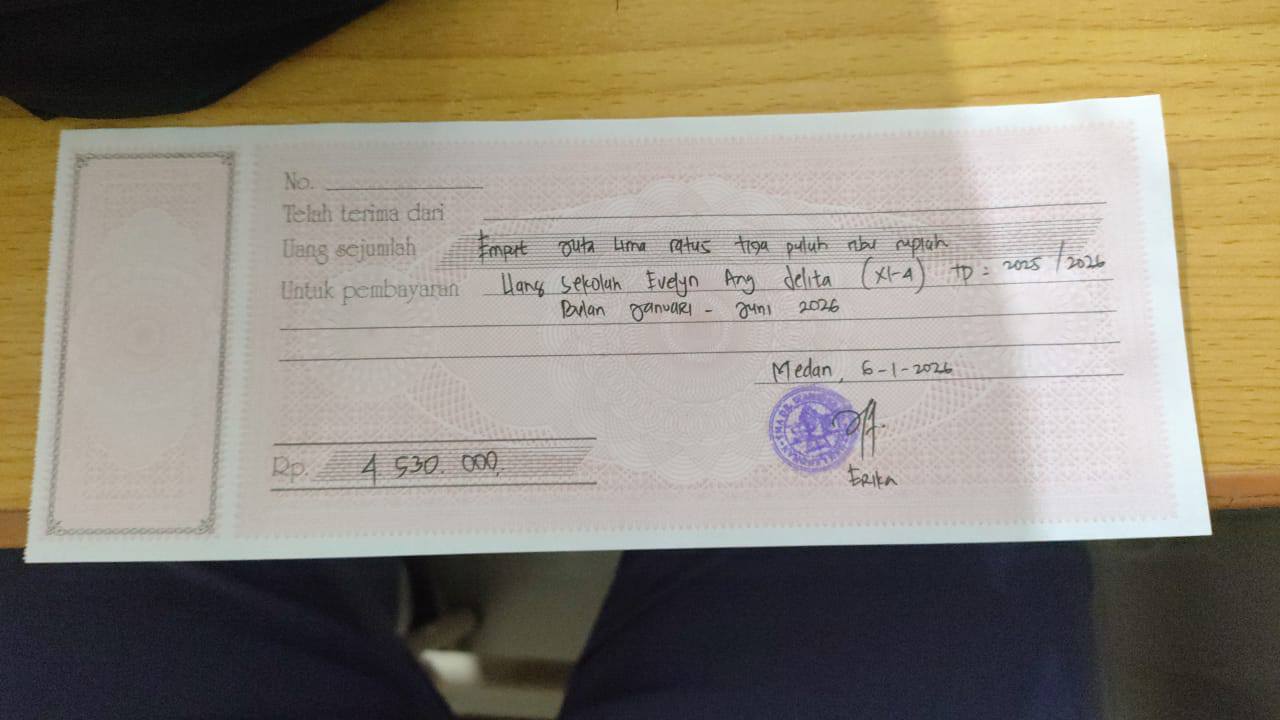 No.
Telah terima dari
Uang sejumlah Empat Juta Lima ratus tiga puluh ribu rupiah
Untuk pembayaran Uang sekolah Evelyn Ang delita (XI-4) TP = 2025/2026
Bulan Januari - Juni 2026
Medan, 6-1-2026
Rp. 4 530.000,
Erika